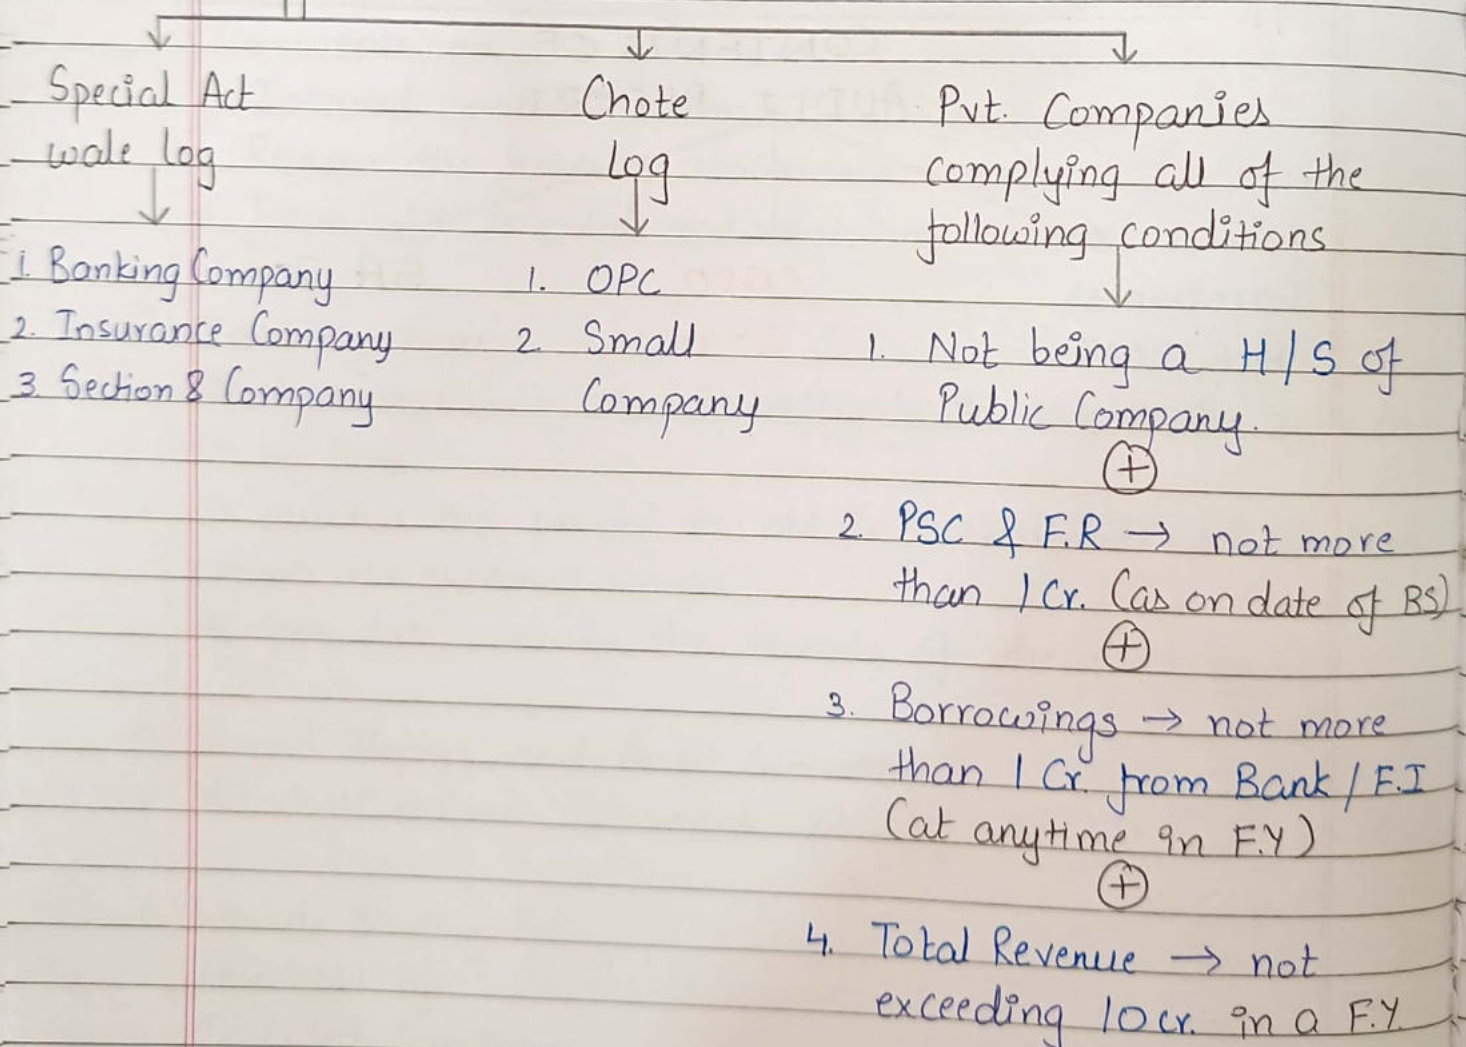 Special Act
wale log
1. Banking Company
2. Insurance Company
3. Section 8 Company
Chote
Log
1. OPC
2. Small
Company
Pvt. Companies
complying all of the
following conditions
1. Not being a H/S of
Public Company.
+
2. PSC & F.R → not more
than 1 Cr. (as on date of BS)
+
3. Borrowings → not more
than 1 Cr. from Bank / F.I
(at anytime in F.Y)
+
4. Total Revenue → not
exceeding 10 cr. in a F.Y.